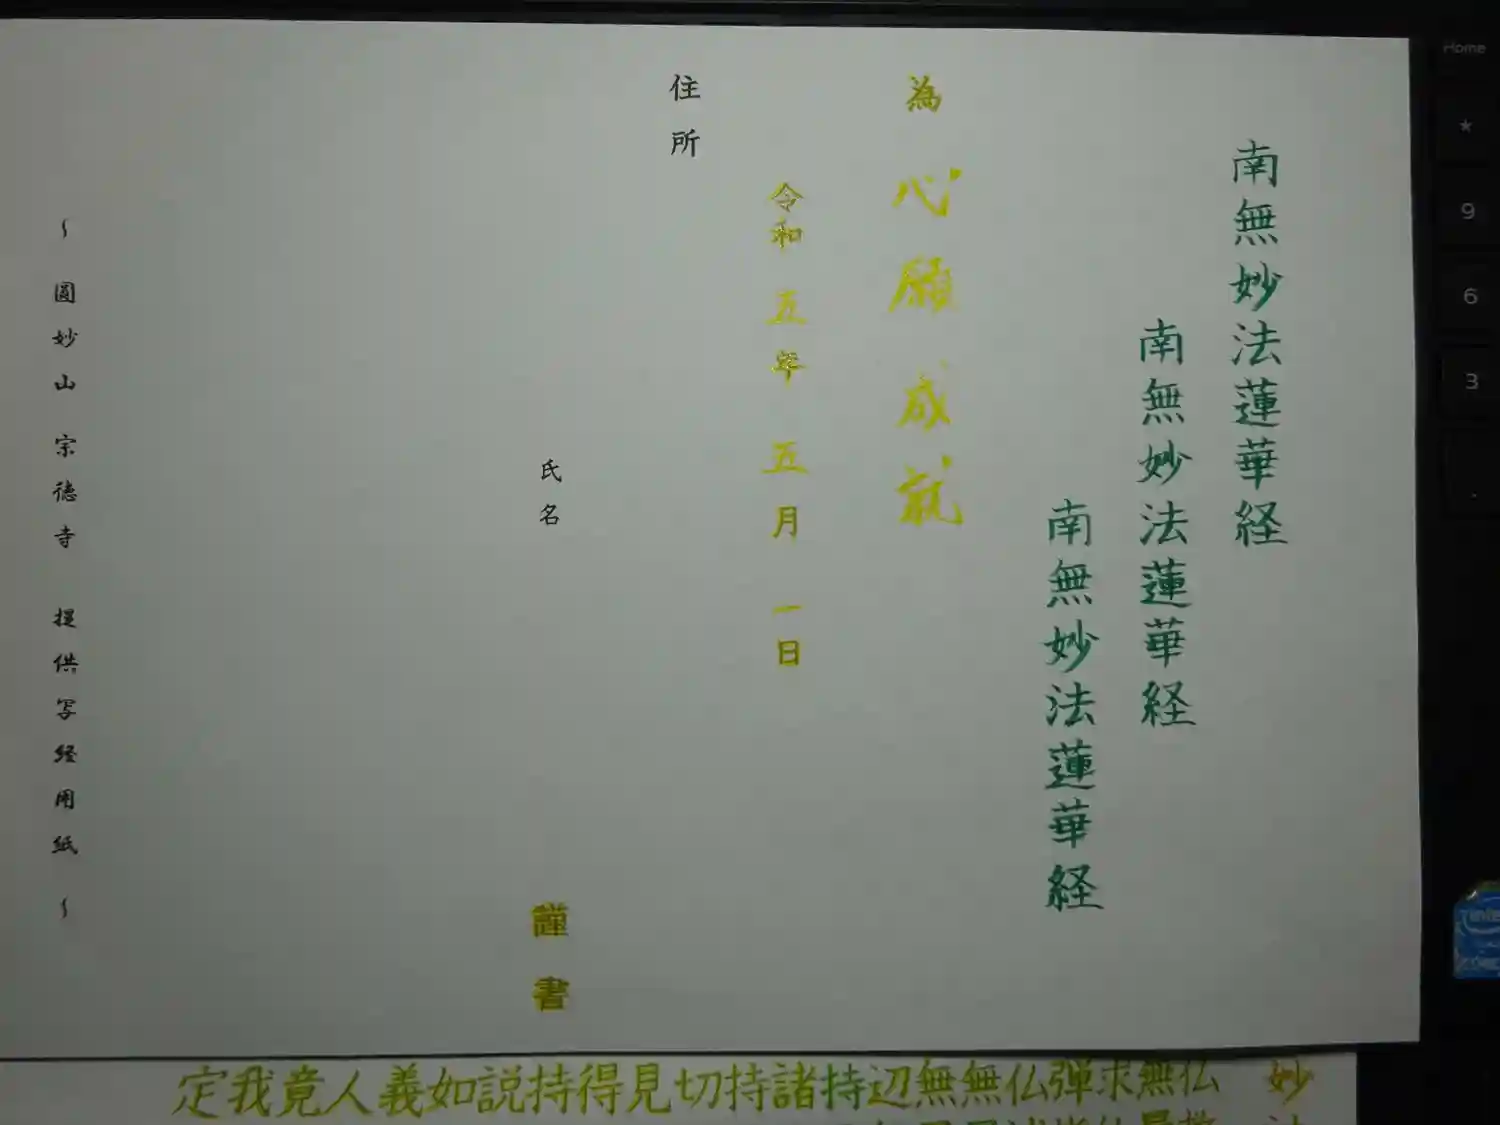 南無妙法蓮華経
南無妙法蓮華経
南無妙法蓮華経
為 心願成就
令和 五年 五月 一日
住所
氏名 謹書
〜 圓妙山 宗徳寺 提供写経用紙 〜
妙法
仏
無
求
弾
仏
無
無
辺
持
諸
持
切
見
得
持
説
如
義
人
竟
我
定
Home
★
9
6
3
.
intel